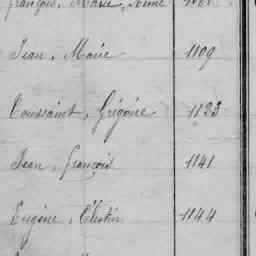 françois, Marie, Aimé
Jean, Marie 1109
Toussaint, Grégoire 1133
Jean, françois 1141
Eugène, Célestin 1144